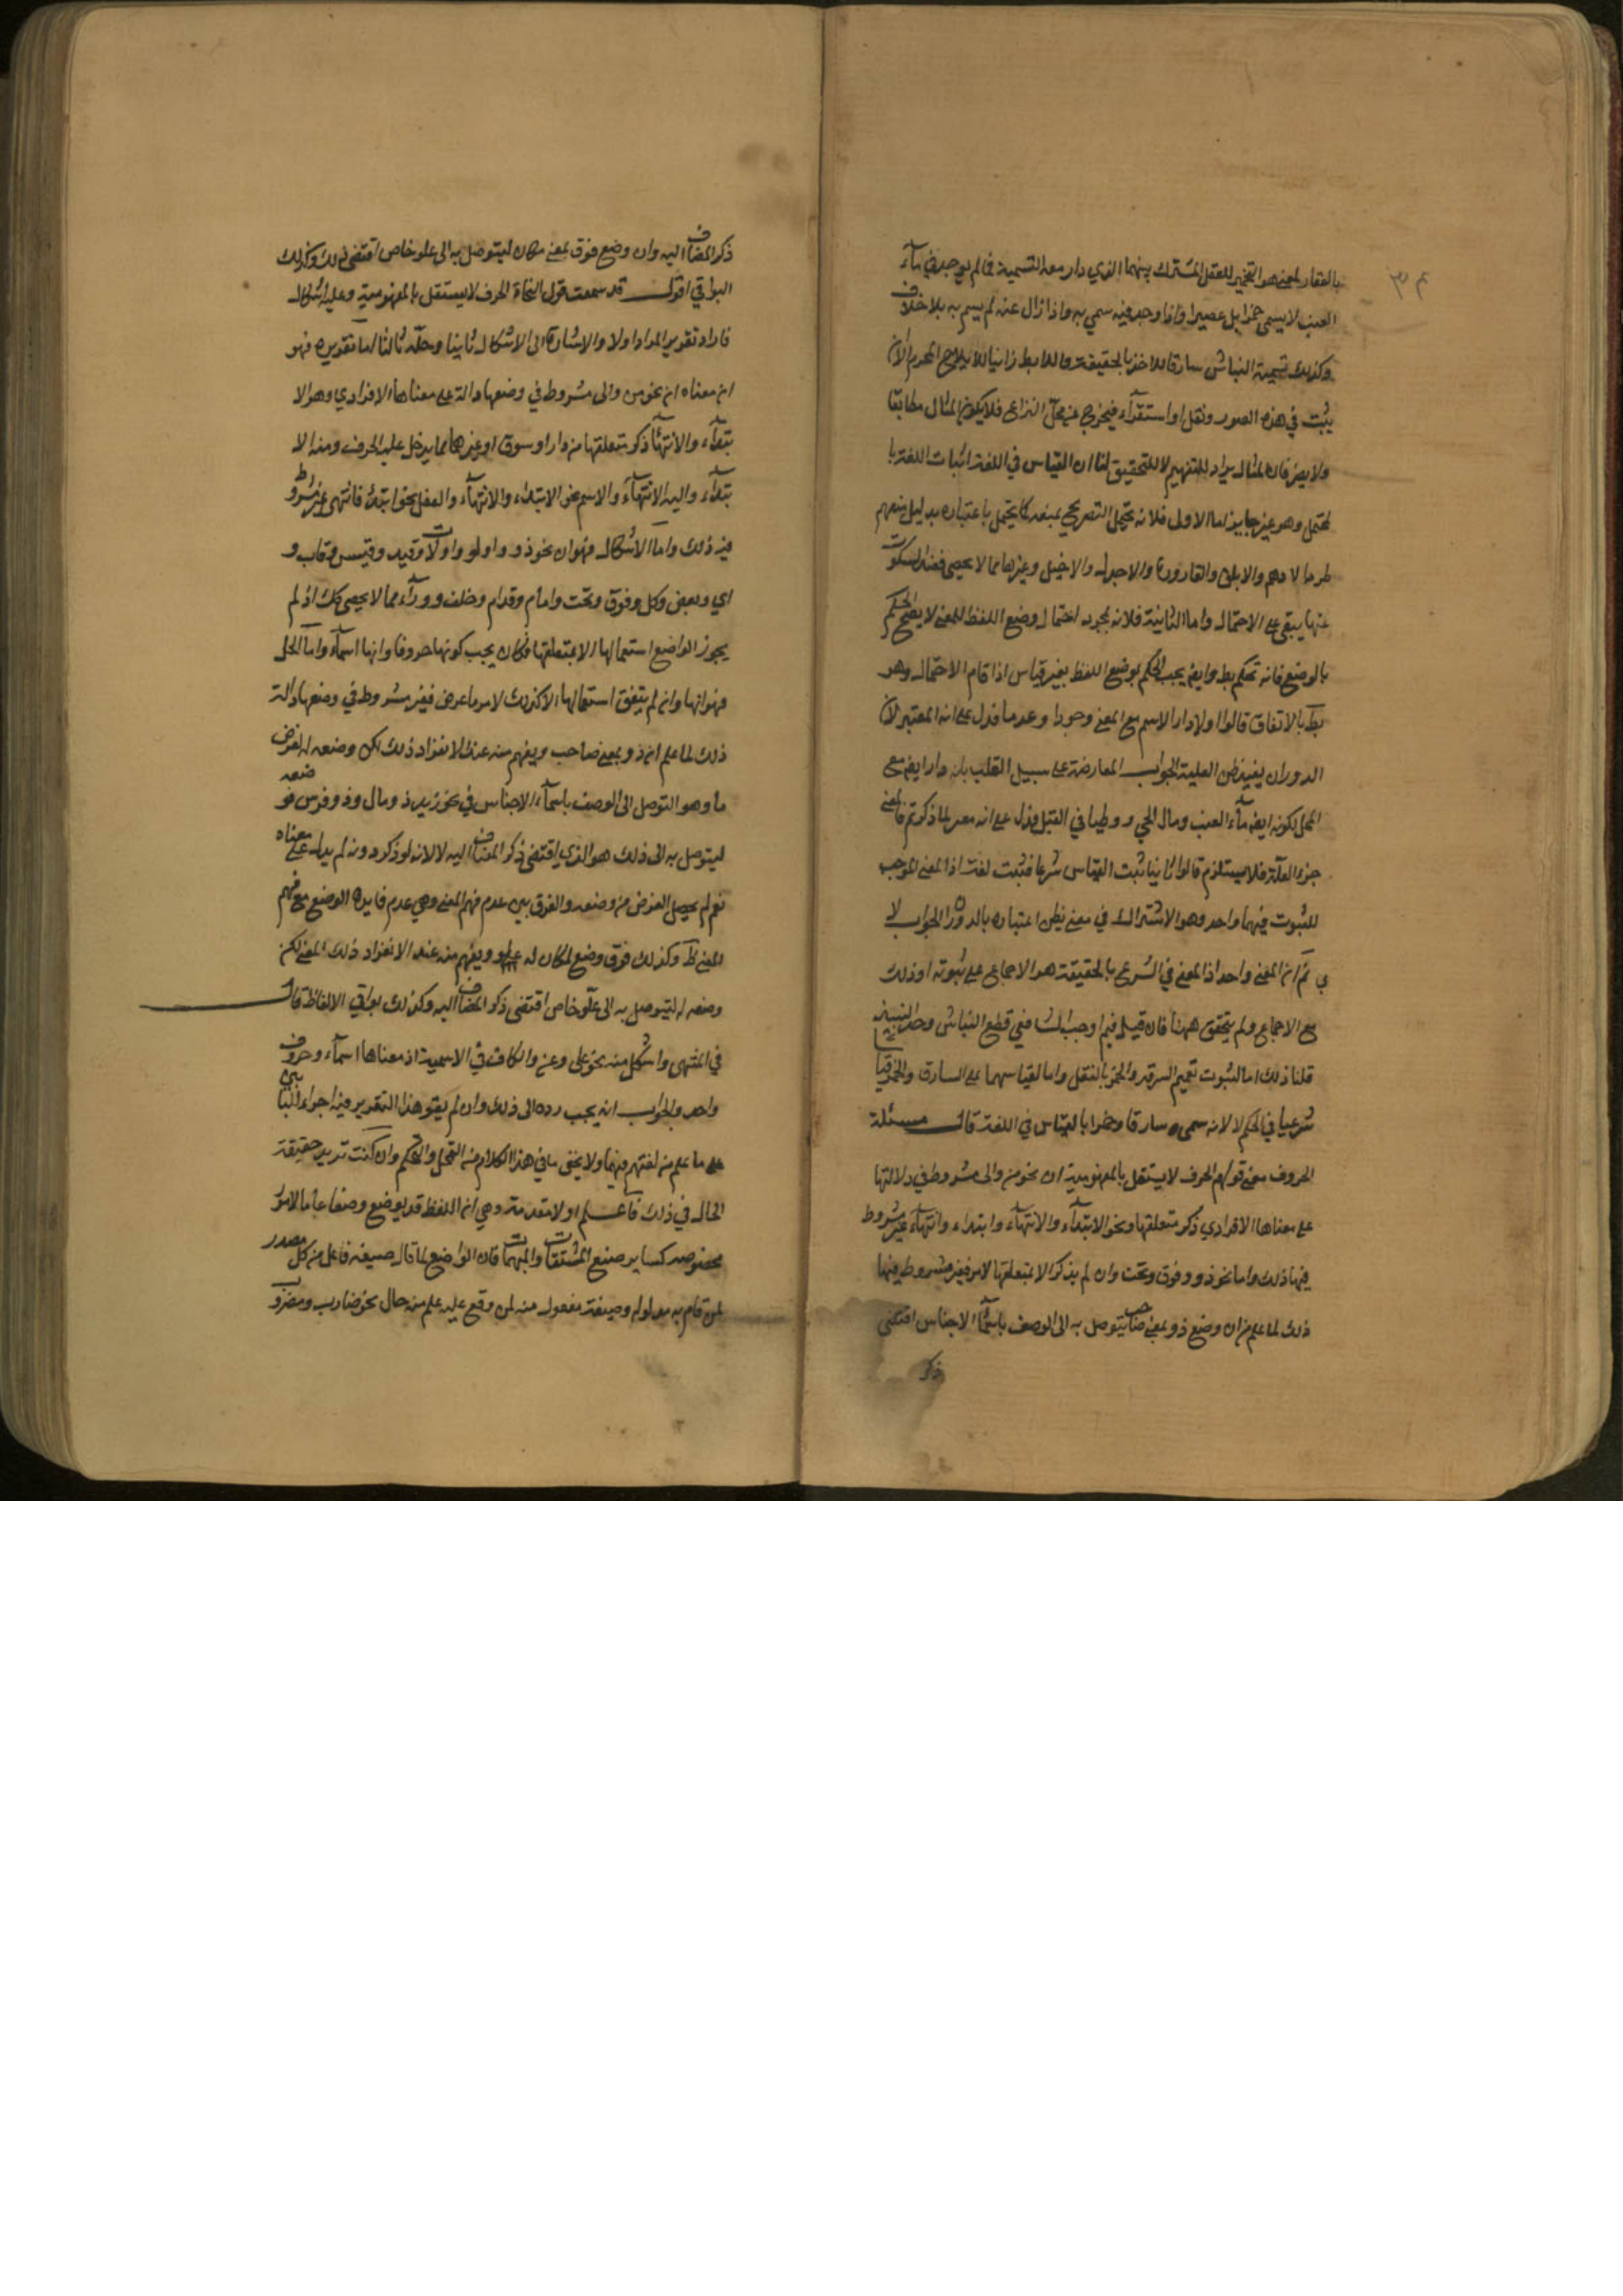 بالعقار لمعنى هو التخمير للعقل المشترك بينهما الذي دار معه التسمية فما لم يوجد في ماء
العنب لا يسمى خمرا بل عصيرا واذا وجد فيه سمي به واذا زال عنه لم يسم به بلا خلاف
وكذلك تسمية النباش سارقا للاخذ بالحقيقة واللايط زانيا للايلاج المحرم الا ان
يثبت في هذه الصور ونقل او استقراء فيخرج عن محل النزاع فلا يكون المثال مطابقا
ولا يضر فان المثال يراد للتفهيم لا للتحقيق لنا ان القياس في اللغة اثبات اللغة با
لمحتمل وهو غير جايز اما الاولى فلانه يحتمل التصريح بمنعه كما يحتمل باعتباره بدليل منعهم
طرد الادهم والابلق والقارورة والاجدل والاخيل وغيرها مما لا يحصى فعند السكوت
عنها يبقى على الاحتمال واما الثانية فلانه بمجرد احتمال وضع اللفظ للمعنى لا يصح الحكم
بالوضع فانه تحكم بط وايضا يجب الحكم بوضع اللفظ بغير قياس اذا قام الاحتمال وهو
بط بالاتفاق قالوا اولا دار الاسم مع المعنى وجودا وعدما فدل على انه المعتبر لان
الدوران يفيد ظن العلية الجواب المعارضة على سبيل القلب بانه دار ايضا مع
المحل لكونه ايضا ماء العنب ومال الحي ووطيا في القبل فدل على انه معتبر لما ذكرتم فالمعنى
جزء العلة فلا يستلزم قالوا ثانيا ثبت القياس شرعا فثبت لغة اذ المعنى الموجب
للثبوت فيهما واحد وهو الاشتراك في معنى يظن اعتباره بالدوران الجواب لا
ي تم ان المعنى واحد اذ المعنى في الشرعي بالحقيقة هو الاجماع على ثبوته اوذلك
مع الاجماع ولم يتحقق ههنا فان قيل فبم اوجب الشافعي قطع النباش وحد النبيذ
قلنا ذلك اما لثبوت تعميم السرقة والخمر بالنقل واما لقياسهما على السارق والخمر قياسا
شرعيا في الحكم لا لانه سمى سارقا وخمرا بالقياس في اللغة قال مسئلة
الحروف معنى قولهم الحرف لا يستقل بالمفهومية ان نحو من والى مشروط في دلالتها
على معناها الافرادي ذكر متعلقها ونحو الابتداء والانتهاء وابتداء وانتهاء غير مشروط
فيها ذلك واما نحو ذو وفوق وتحت وان لم يذكر الا بمتعلقها لامر فغير مشروط فيها
ذلك لما علم من ان وضع ذو بمعنى صاحب ليتوصل به الى الوصف باسماء الاجناس اقتضى
ذكر
ذكر المضاف اليه وان وضع فوق بمعنى مكان ليتوصل به الى علو خاص اقتضى ذلك وكذلك
البواقي اقول قد سمعت قول النحاة الحرف لا يستقل بالمفهومية وعليه اشكال
فاراد تقرير المراد اولا والاشارة الى الاشكال ثانيا وحله ثالثا اما تقديره فهو
ان معناه ان نحو من والى مشروط في وضعها دالة على معناها الافرادي وهو الا
بتداء والانتهاء ذكر متعلقها من دار او سوق او غيرهما مما يدخل عليه الحرف ومنه الا
بتداء واليه الانتهاء والاسم نحو الابتداء والانتهاء والفعل نحو ابتداء فانتهى غير مشروط
فيه ذلك واما الاشكال فهو ان نحو ذو واولو واولات وقيد وقيس وقاب و
اي وبعض وكل وفوق وتحت وامام وقدام وخلف ووراء مما لا يحصى كذلك اذ لم
يجوز الواضع استعمالها الا بمتعلقها فكان يجب كونها حروفا وانها اسماء واما الحل
فهو انها وان لم يتفق استعمالها الا كذلك لامر ما عرض فغير مشروط في وضعها دالة
ذلك لما علم ان ذو بمعنى صاحب ويفهم منه عند الانفراد ذلك لكن وضعه له لغرض
ما وهو التوصل الى الوصف باسماء الاجناس في نحو زيد ذو مال وذو فرس فوضعه
ليتوصل به الى ذلك هو الذي اقتضى ذكر المضاف اليه لا لانه لو ذكر دونه لم يدل على معناه
نعم لم يحصل الغرض من وضعه والفرق بين عدم فهم المعنى وهي عدم فايدة الوضع مع فهم
المعنى ظ وكذلك فوق وضع لمكان له علو ويفهم منه عند الانفراد ذلك المعنى لكن
وضعه له ليتوصل به الى علو خاص اقتضى ذكر المضاف اليه وكذلك بواقي الالفاظ قال
في المنتهى واشكل منه نحو على وعن والكاف في الاسمية اذ معناها اسماء وحروف
واحد والجواب انه يجب رده الى ذلك وان لم يقو هذا التقدير فيه اجراء البابين
على ما علم من لغتهم فيهما ولا يخفى ما في هذا الكلام من التمحل والتحكم وان كنت تريد حقيقة
الحال في ذلك فاعلم اولا مقدمة وهي ان اللفظ قد يوضع وضعا عاما لامور
مخصوصة كساير صيغ المشتقات والمبهمات فان الواضع لما قال صيغة فاعل من كل مصدر
لمن قام به مدلوله وصيغة مفعول منه لمن وقع عليه علم منه حال نحو ضارب ومضروب